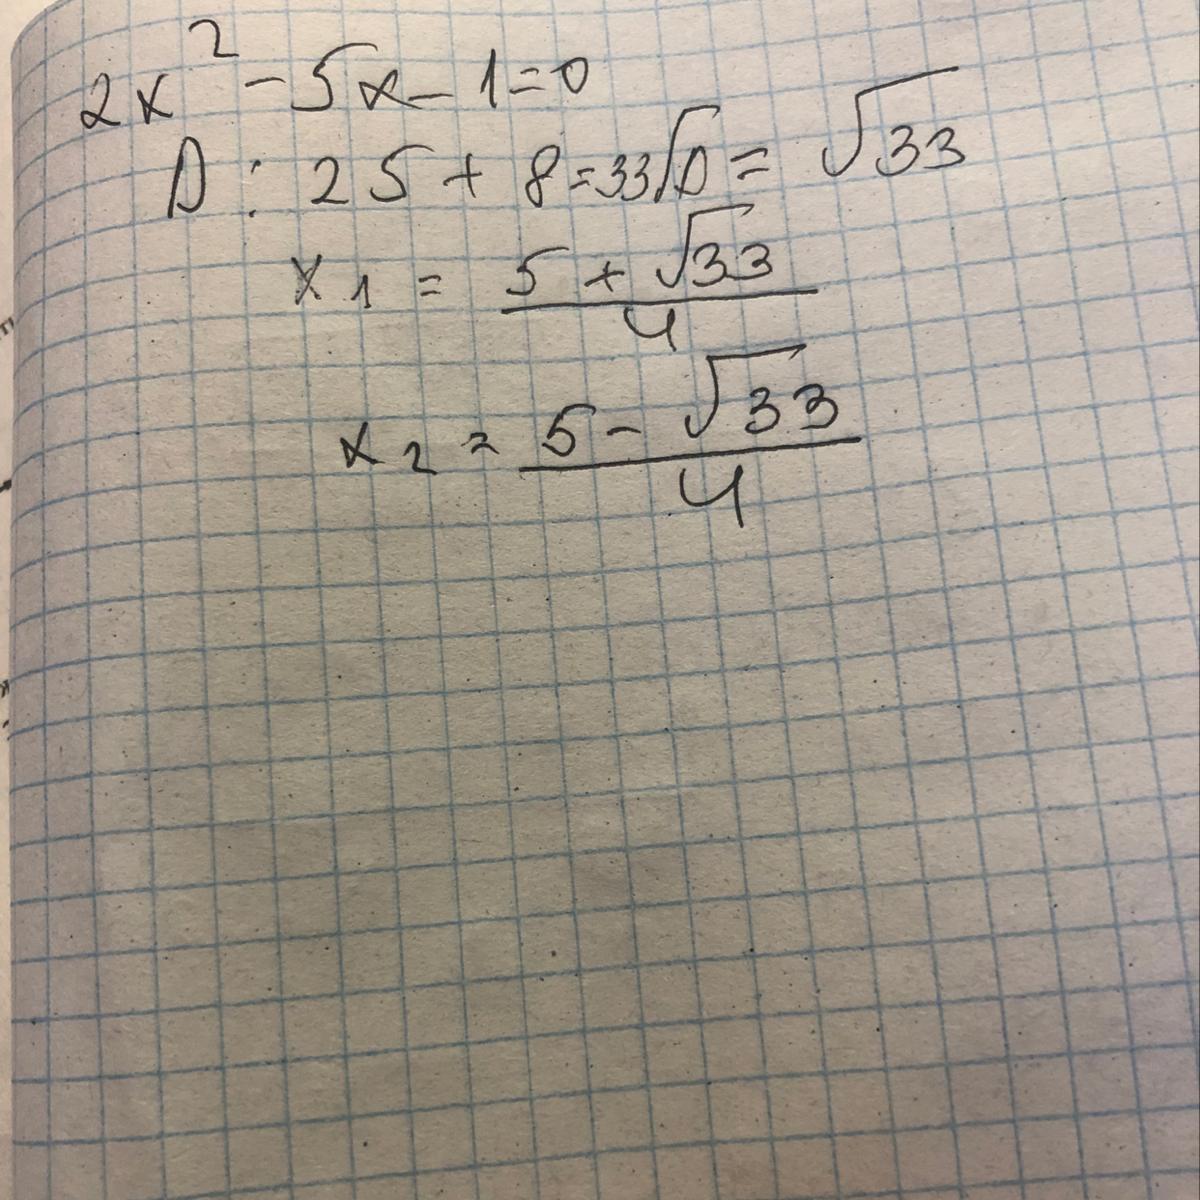 2x² - 5x - 1 = 0
D : 25 + 8 = 33 √D = √33
x₁ = (5 + √33)/4
x₂ = (5 - √33)/4